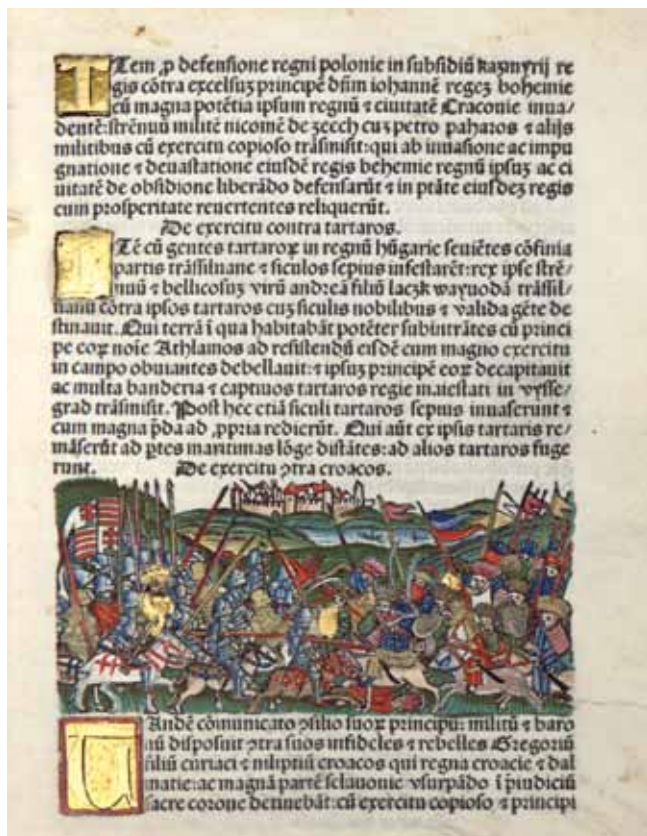 ITem ꝓ defensione regni polonie in subsidiū kazmyrij re
gis cōtra excelsuȝ principē dn̄m iohannē regeȝ bohemie
cū magna potētia ipsum regnū ⁊ ciuitatē Craconie inua/
dentē: strēnuū militē nicomē de zeech cuȝ petro paharos ⁊ alijs
militibus cū exercitu copioso trāsmisit: qui ab inuasione ac impu
gnatione ⁊ deuastatione eiusdē regis behemie regnū ipsuȝ ac ci
uitatē de obsidione liberādo defensarūt ⁊ in ptāte eiusdeȝ regis
cum prosperitate reuertentes reliquerūt.
De exercitu contra tartaros.
ITē cū gentes tartaroꝝ in regnū hūgarie seuiētes cōfinia
partis trāssiluane ⁊ siculos sepius infestarēt: rex ipse strē/
nuū ⁊ bellicosuȝ virū andreā filiū laczk wayuodā trāssil-
uanū cōtra ipsos tartaros cuȝ siculis nobilibus ⁊ valida gēte de
stinauit. Qui terrā ī qua habitabāt potēter subintrātes cū princi
pe eoꝝ noīe Athlamos ad resistendū eisdē cum magno exercitu
in campo obuiantes debellauit: ⁊ ipsuȝ principē eoꝝ decapitauit
ac multa banderia ⁊ captiuos tartaros regie maiestati in vysse/
grad trāsmisit. Post hec etiā siculi tartaros sepius inuaserunt ⁊
cum magna p̄da ad ꝓpria redierūt. Qui aūt ex ipsis tartaris re/
māserūt ad ꝑtes maritimas lōge distātes: ad alios tartaros fuge
runt. De exercitu ꝯtra croacos.
UAndē cōmunicato ꝯsilio suoꝝ principū: militū ⁊ baro
nū disposuit ꝯtra suos infideles ⁊ rebelles Gregoriū
filiū curiaci ⁊ niliptiū croacos qui regna croacie ⁊ dal
matie: ac magnā partē sclauonie vsurpādo ī p̄iudiciū
sacre corone detinebāt: cū exercitu copioso ⁊ principi